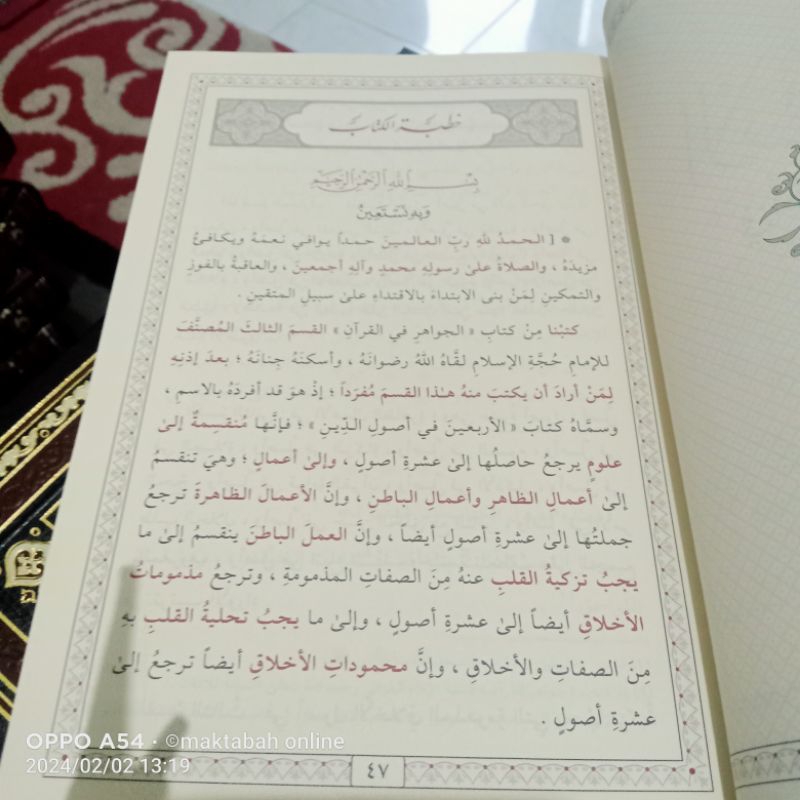 خطبة الكتاب
بِسْمِ اللَّهِ الرَّحْمٰنِ الرَّحِيمِ
وَبِهِ نَسْتَعِينُ
* [ الحمدُ للهِ ربِّ العالمينَ حمداً يوافي نعمَهُ ويكافئُ
مزيدَهُ ، والصلاةُ علىٰ رسولِهِ محمدٍ وآلِهِ أجمعينَ ، والعاقبةُ بالفوزِ
والتمكينِ لِمَنْ بنى الابتداءَ بالاقتداءِ علىٰ سبيلِ المتقينَ .
كتبْنا مِنْ كتابِ « الجواهرِ في القرآنِ » القسمَ الثالثَ المُصنَّفَ
للإمامِ حُجَّةِ الإسلامِ لقَّاهُ اللهُ رضوانَهُ ، وأسكنَهُ جِنانَهُ ؛ بعدَ إذنِهِ
لِمَنْ أرادَ أن يكتبَ منهُ هـٰذا القسمَ مُفرَداً ؛ إذْ هوَ قد أفردَهُ بالاسمِ ،
وسمَّاهُ كتابَ « الأربعينَ في أصولِ الدِّينِ » ؛ فإنَّها مُنقسِمةٌ إلىٰ
علومٍ يرجعُ حاصلُها إلىٰ عشرةِ أصولٍ ، وإلىٰ أعمالٍ ؛ وهيَ تنقسمُ
إلىٰ أعمالِ الظاهرِ وأعمالِ الباطنِ ، وإنَّ الأعمالَ الظاهرةَ تَرجعُ
جملتُها إلىٰ عشرةِ أصولٍ أيضاً ، وإنَّ العملَ الباطنَ ينقسمُ إلىٰ ما
يجبُ تزكيةُ القلبِ عنهُ مِنَ الصفاتِ المذمومةِ ، وترجعُ مذموماتُ
الأخلاقِ أيضاً إلىٰ عشرةِ أصولٍ ، وإلىٰ ما يجبُ تحليةُ القلبِ بهِ
مِنَ الصفاتِ والأخلاقِ ، وإنَّ محموداتِ الأخلاقِ أيضاً ترجعُ إلىٰ
عشرةِ أصولٍ .
٤٧
OPPO A54 · ©maktabah online
2024/02/02 13:19